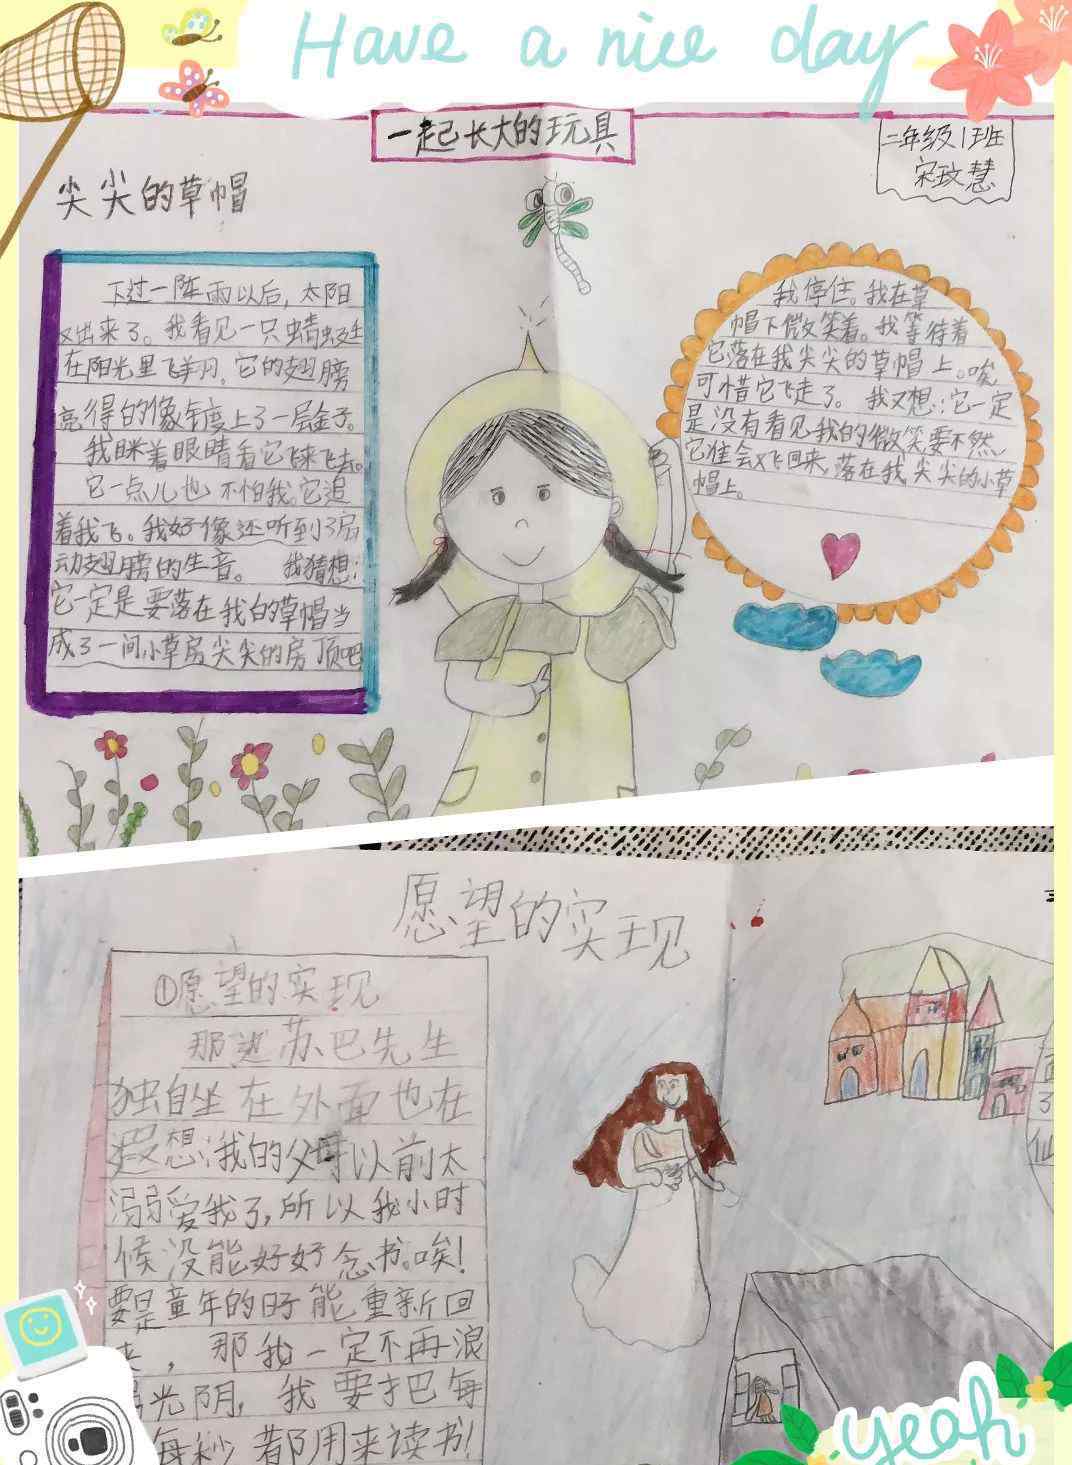 Have a nice day
一起长大的玩具
二年级1班
宋玟慧
尖尖的草帽
下过一阵雨以后，太阳
又出来了。我看见一只蜻蜓
在阳光里飞翔，它的翅膀
亮得的像镀上了一层金子。
我眯着眼睛看它飞来飞去。
它一点儿也不怕我。它追
着我飞。我好像还听到了扇
动翅膀的生音。 我猜想：
它一定是要落在我的草帽当
成了一间小草房尖尖的房顶吧
我停住。我在草
帽下微笑着。我等待着
它落在我尖尖的草帽上。唉
可惜它飞走了。 我又想：它一定
是没有看见我的微笑要不然，
它准会又飞回来，落在我尖尖的小草
帽上。
愿望的实现
①愿望的实现
那边苏巴先生
独自坐在外面也在
想：我的父母以前太
溺爱我了，所以我小时
候没能好好念书。唉！
要是童年的时能重新回
，那我一定不再浪
光阴，我要把每
每秒都用来读书！
仙
yeah